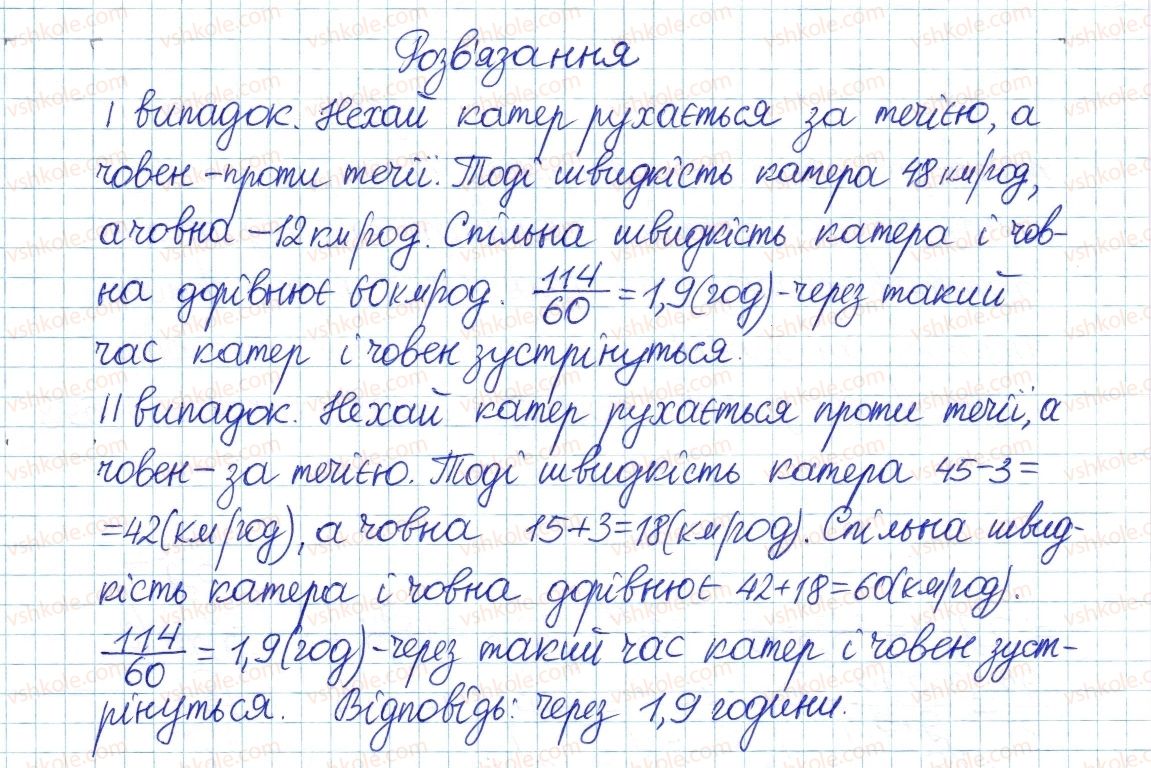 Розв'язання
І випадок. Нехай катер рухається за течією, а
човен - проти течії. Тоді швидкість катера 48 км/год,
а човна - 12 км/год. Спільна швидкість катера і чов-
на дорівнює 60 км/год. 114/60 = 1,9 (год) - через такий
час катер і човен зустрінуться.
ІІ випадок. Нехай катер рухається проти течії, а
човен - за течією. Тоді швидкість катера 45 - 3 =
= 42 (км/год), а човна 15 + 3 = 18 (км/год). Спільна швид-
кість катера і човна дорівнює 42 + 18 = 60 (км/год).
114/60 = 1,9 (год) - через такий час катер і човен зуст-
рінуться. Відповідь: через 1,9 години.